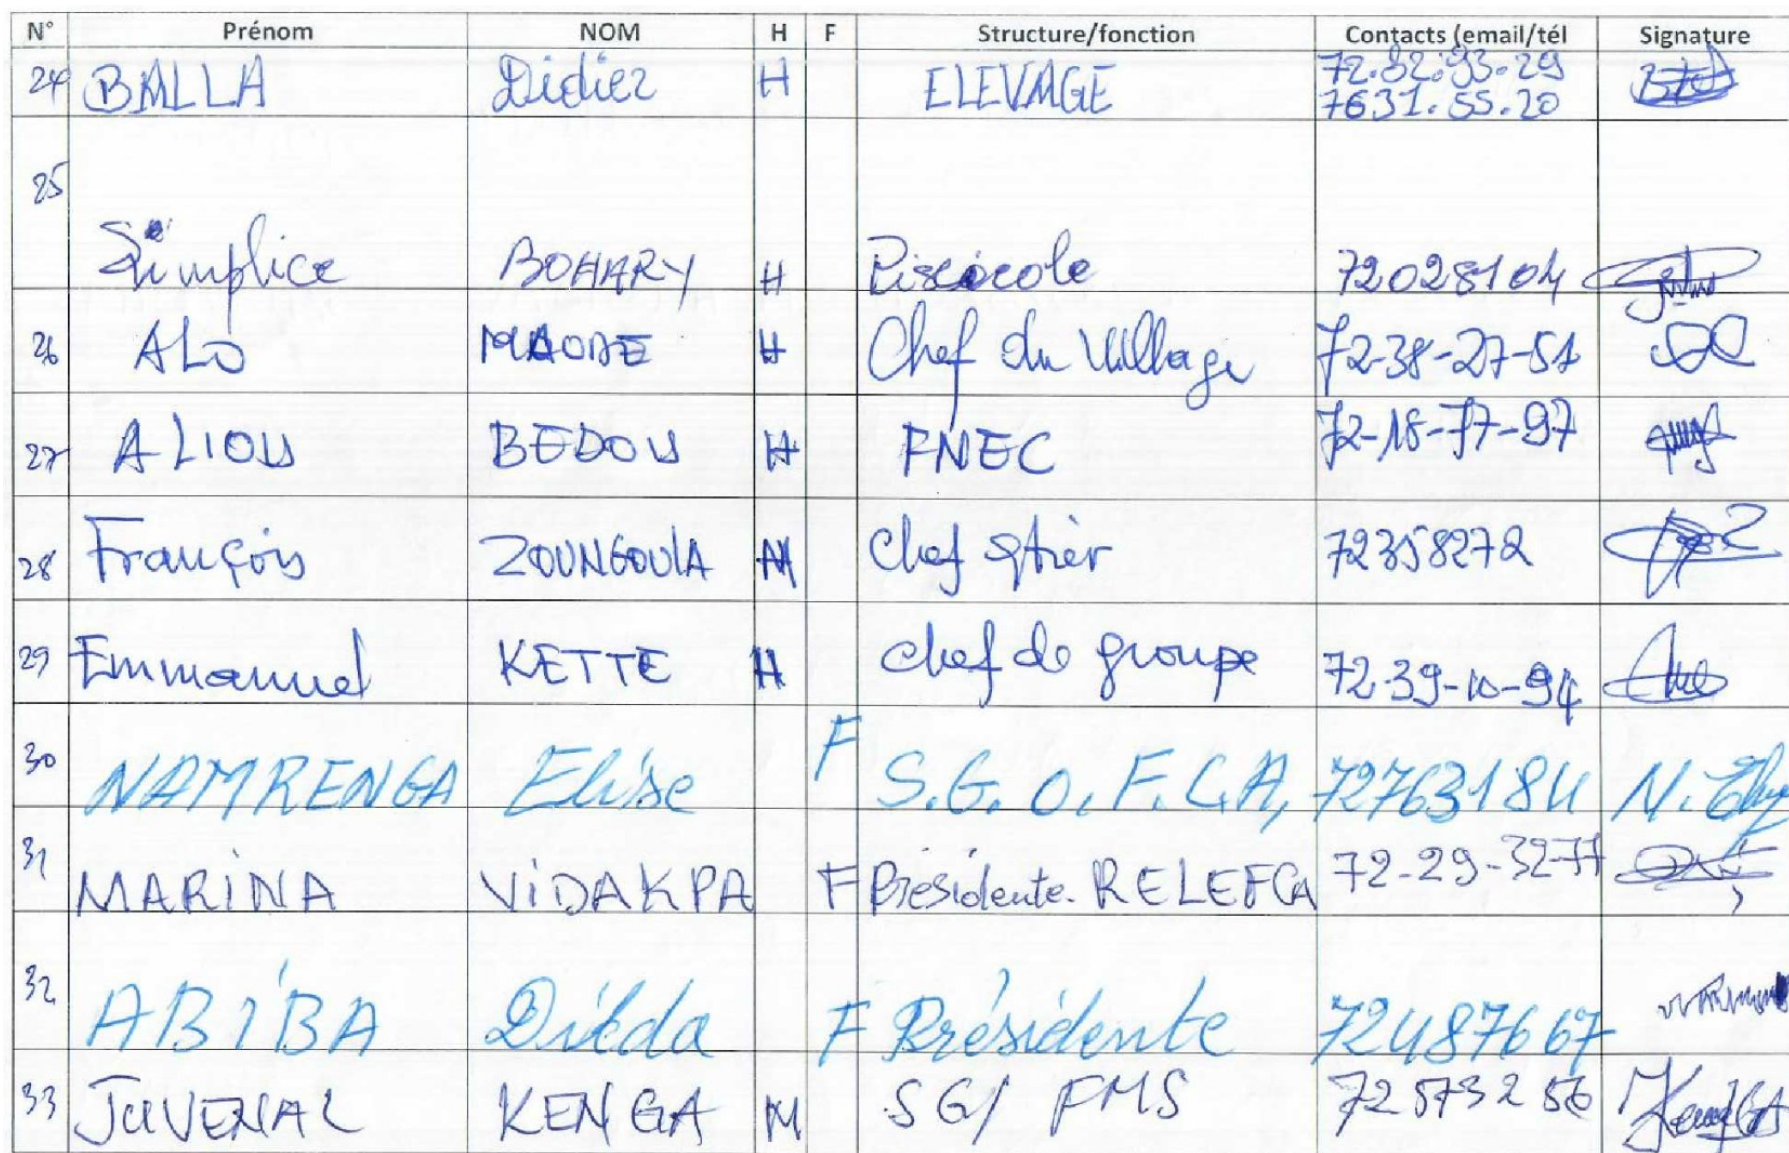 N° Prénom NOM H F Structure/fonction Contacts (email/tél Signature
24 BALLA Didier H ELEVAGE 72.82.93.29
7631.55.20
25 Simplice BOHARY H Piscicole 72028104
26 ALO H Chef du Village 72-38-27-51
27 ALIOU BEDOU H FNEC 72-18-77-97
28 François ZOUNGOULA M Chef qtier 72358272
29 Emmanuel KETTE H chef de groupe 72-39-10-94
30 NAMRENGA Elise F S.G.O.F.C.A, 72763184 N.
31 MARINA ViDAKPA F Présidente. RELEFCA 72-29-32-77
32 ABIBA F Présidente 72487667
33 JUVENAL KENGA M SG/ PMS 72573256